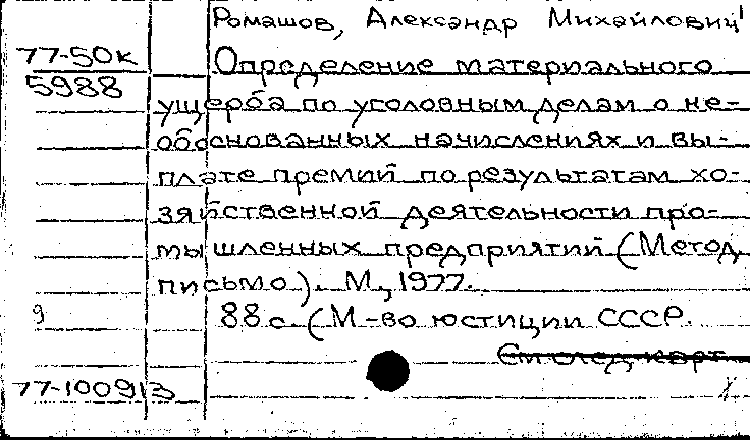 Ромашов, Александр Михайлович
77-50к Определение материального
5988 ущерба по уголовным делам о не-
обоснованных начислениях и вы-
плате премий по результатам хо-
зяйственной деятельности про-
мышленных предприятий (Метод.
письмо). М., 1977.
9 88 с. (М-во юстиции СССР.
См след карт
77-100913